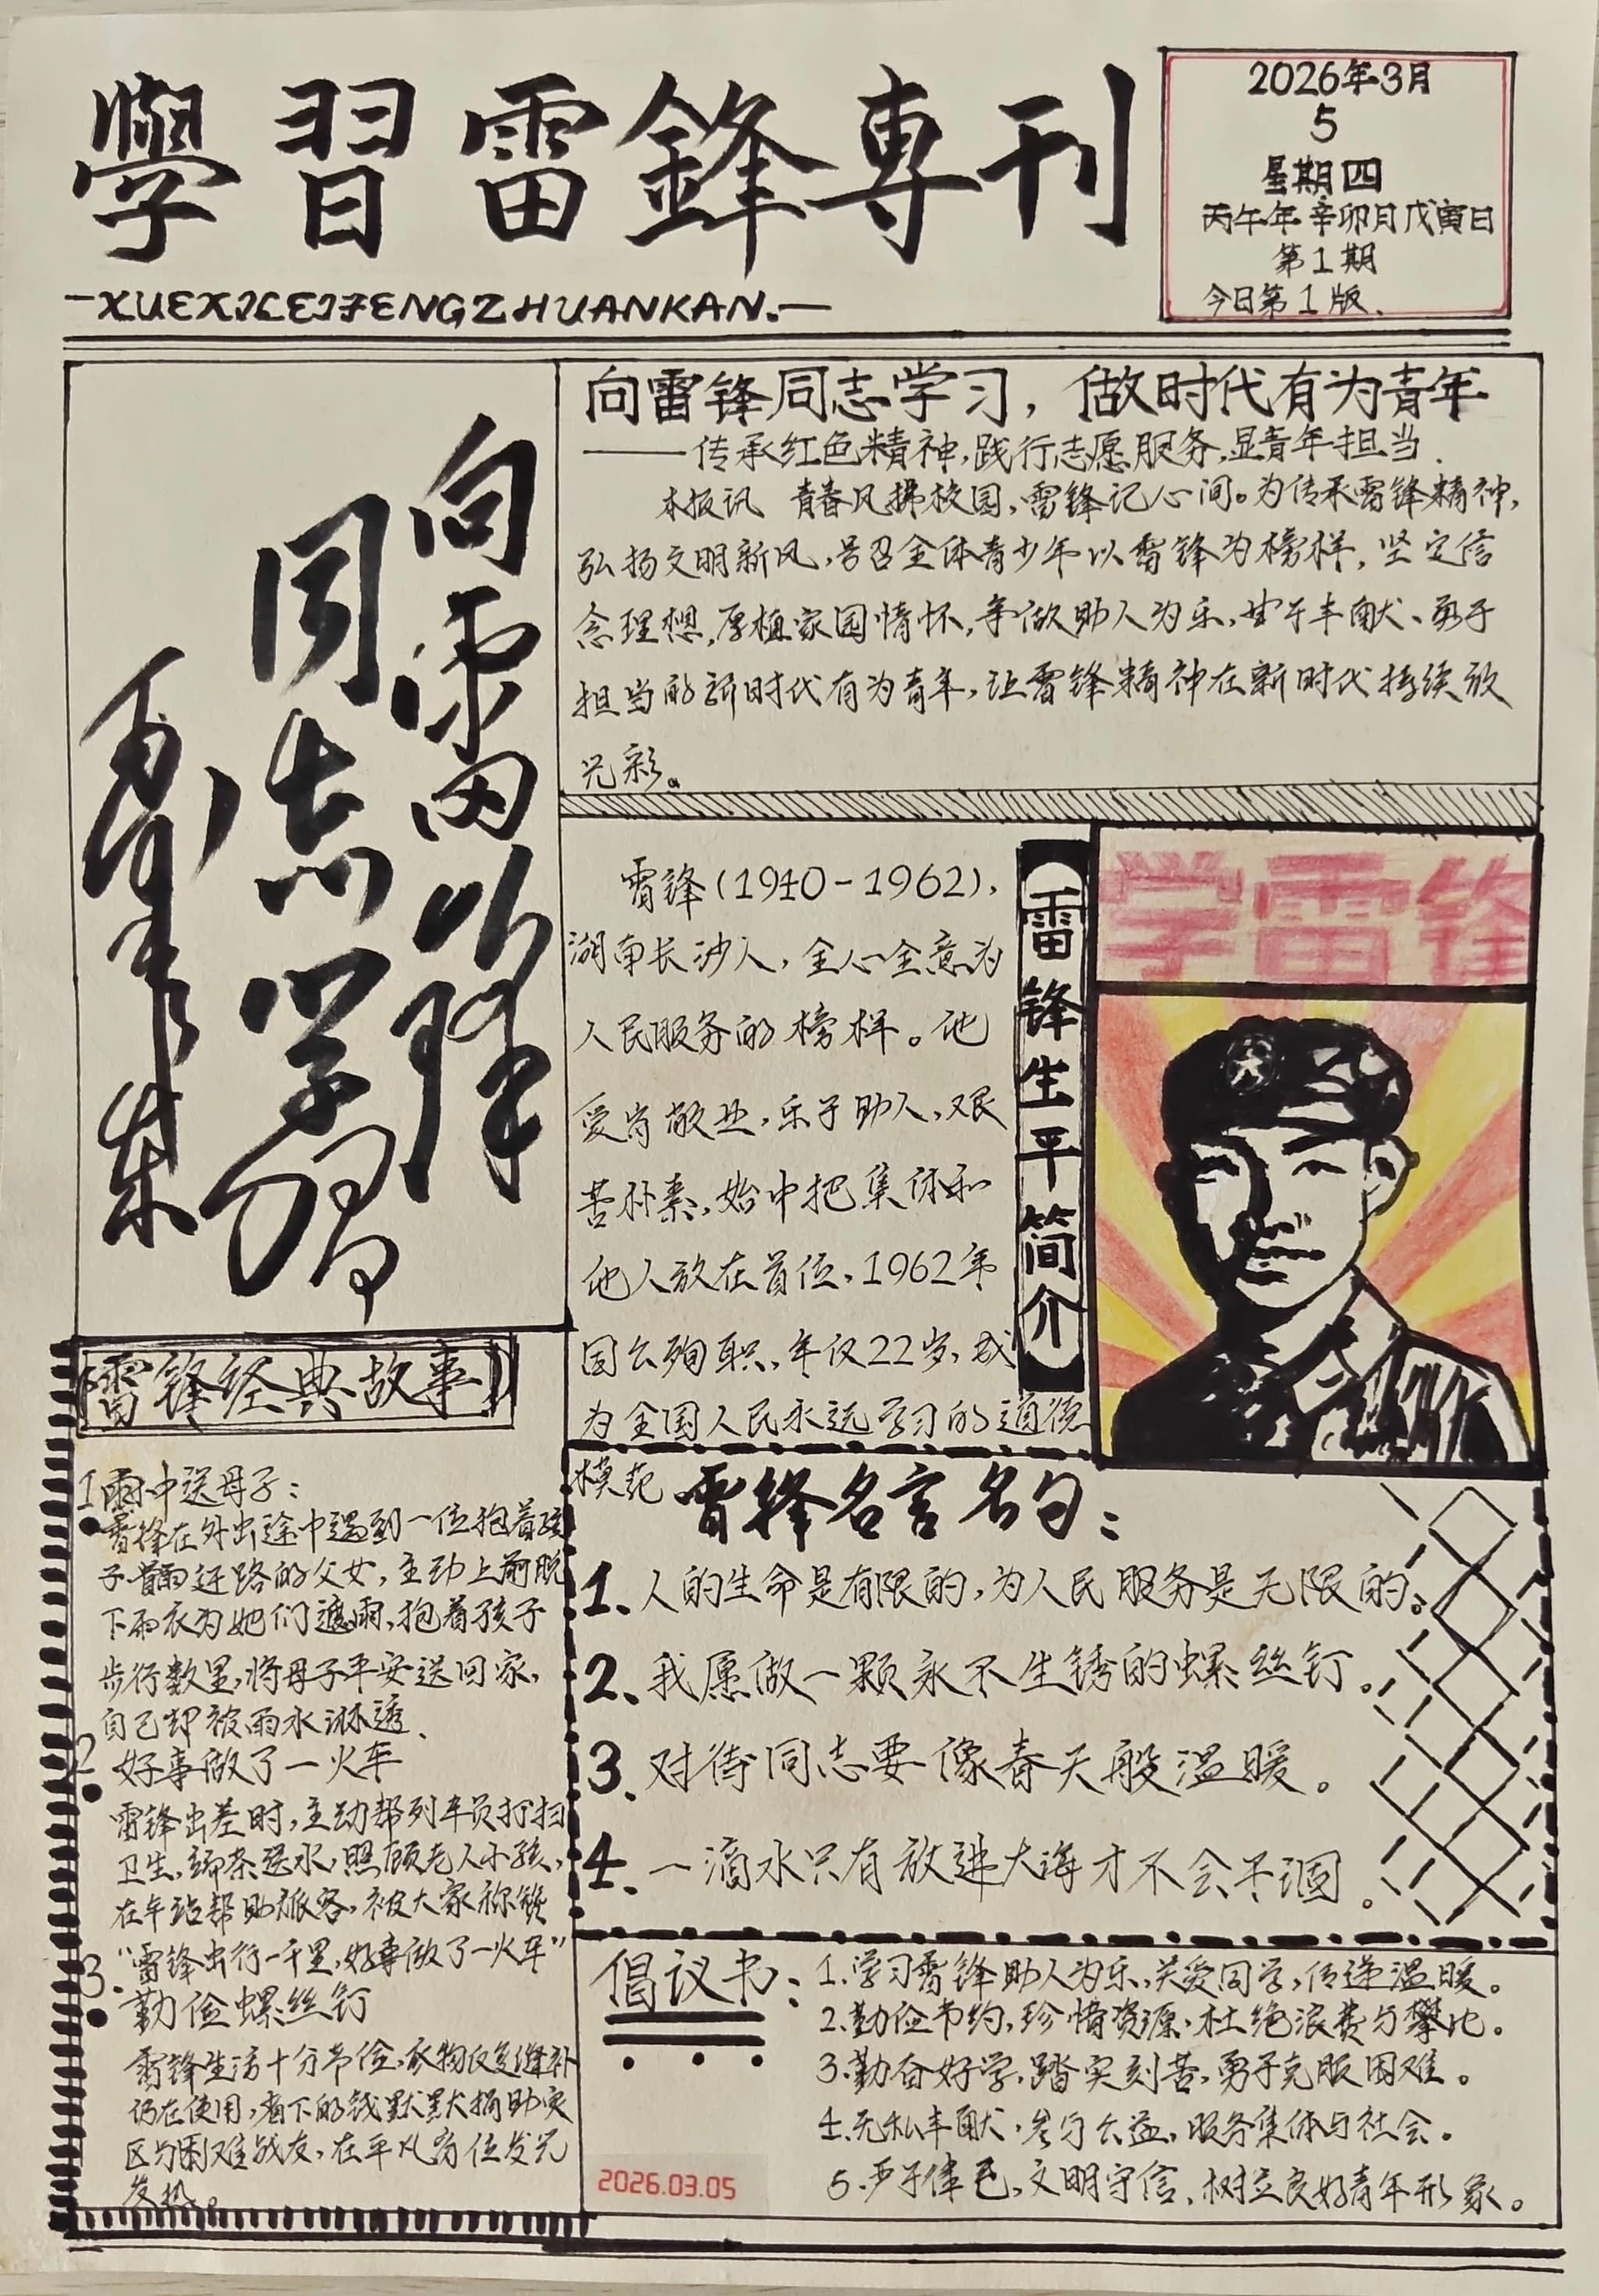 學習雷鋒專刊
-XUEXILEIFENGZHUANKAN.-
2026年3月
5
星期四
丙午年辛卯月戊寅日
第1期
今日第1版.
向雷锋
同志学习
毛泽东
向雷锋同志学习，做时代有为青年
——传承红色精神,践行志愿服务,显青年担当.
本报讯 青春风拂校园,雷锋记心间。为传承雷锋精神,
弘扬文明新风,号召全体青少年以雷锋为榜样,坚定信
念理想,厚植家国情怀,争做助人为乐、甘于奉献、勇于
担当的新时代有为青年,让雷锋精神在新时代持续放
光彩。
【雷锋生平简介】
雷锋(1940-1962),
湖南长沙人,全心全意为
人民服务的榜样。他
爱岗敬业,乐于助人、艰
苦朴素,始中把集体和
他人放在首位,1962年
因公殉职,年仅22岁,成
为全国人民永远学习的道德
模范
学雷锋
雷锋经典故事
1雨中送母子:
雷锋在外出途中遇到一位抱着孩
子冒雨赶路的父女,主动上前脱
下雨衣为她们遮雨,抱着孩子
步行数里,将母子平安送回家,
自己却被雨水淋透.
2.好事做了一火车
雷锋出差时,主动帮列车员打扫
卫生,端茶送水,照顾老人小孩,
在车站帮助旅客,被大家称赞
“雷锋出行一千里,好事做了一火车”
3.勤俭螺丝钉
雷锋生活十分节俭,衣物反复缝补
仍在使用,省下的钱默默捐助灾
区与困难战友,在平凡岗位发光
发热。
雷锋名言名句:
1、人的生命是有限的,为人民服务是无限的。
2、我愿做一颗永不生锈的螺丝钉。
3、对待同志要像春天般温暖。
4、一滴水只有放进大海才不会干涸。
倡议书:
1.学习雷锋助人为乐,关爱同学,传递温暖。
2.勤俭节约,珍惜资源,杜绝浪费与攀比。
3.勤奋好学,踏实刻苦,勇于克服困难。
4.无私奉献,参与公益,服务集体与社会。
5.严于律己,文明守信,树立良好青年形象。
2026.03.05